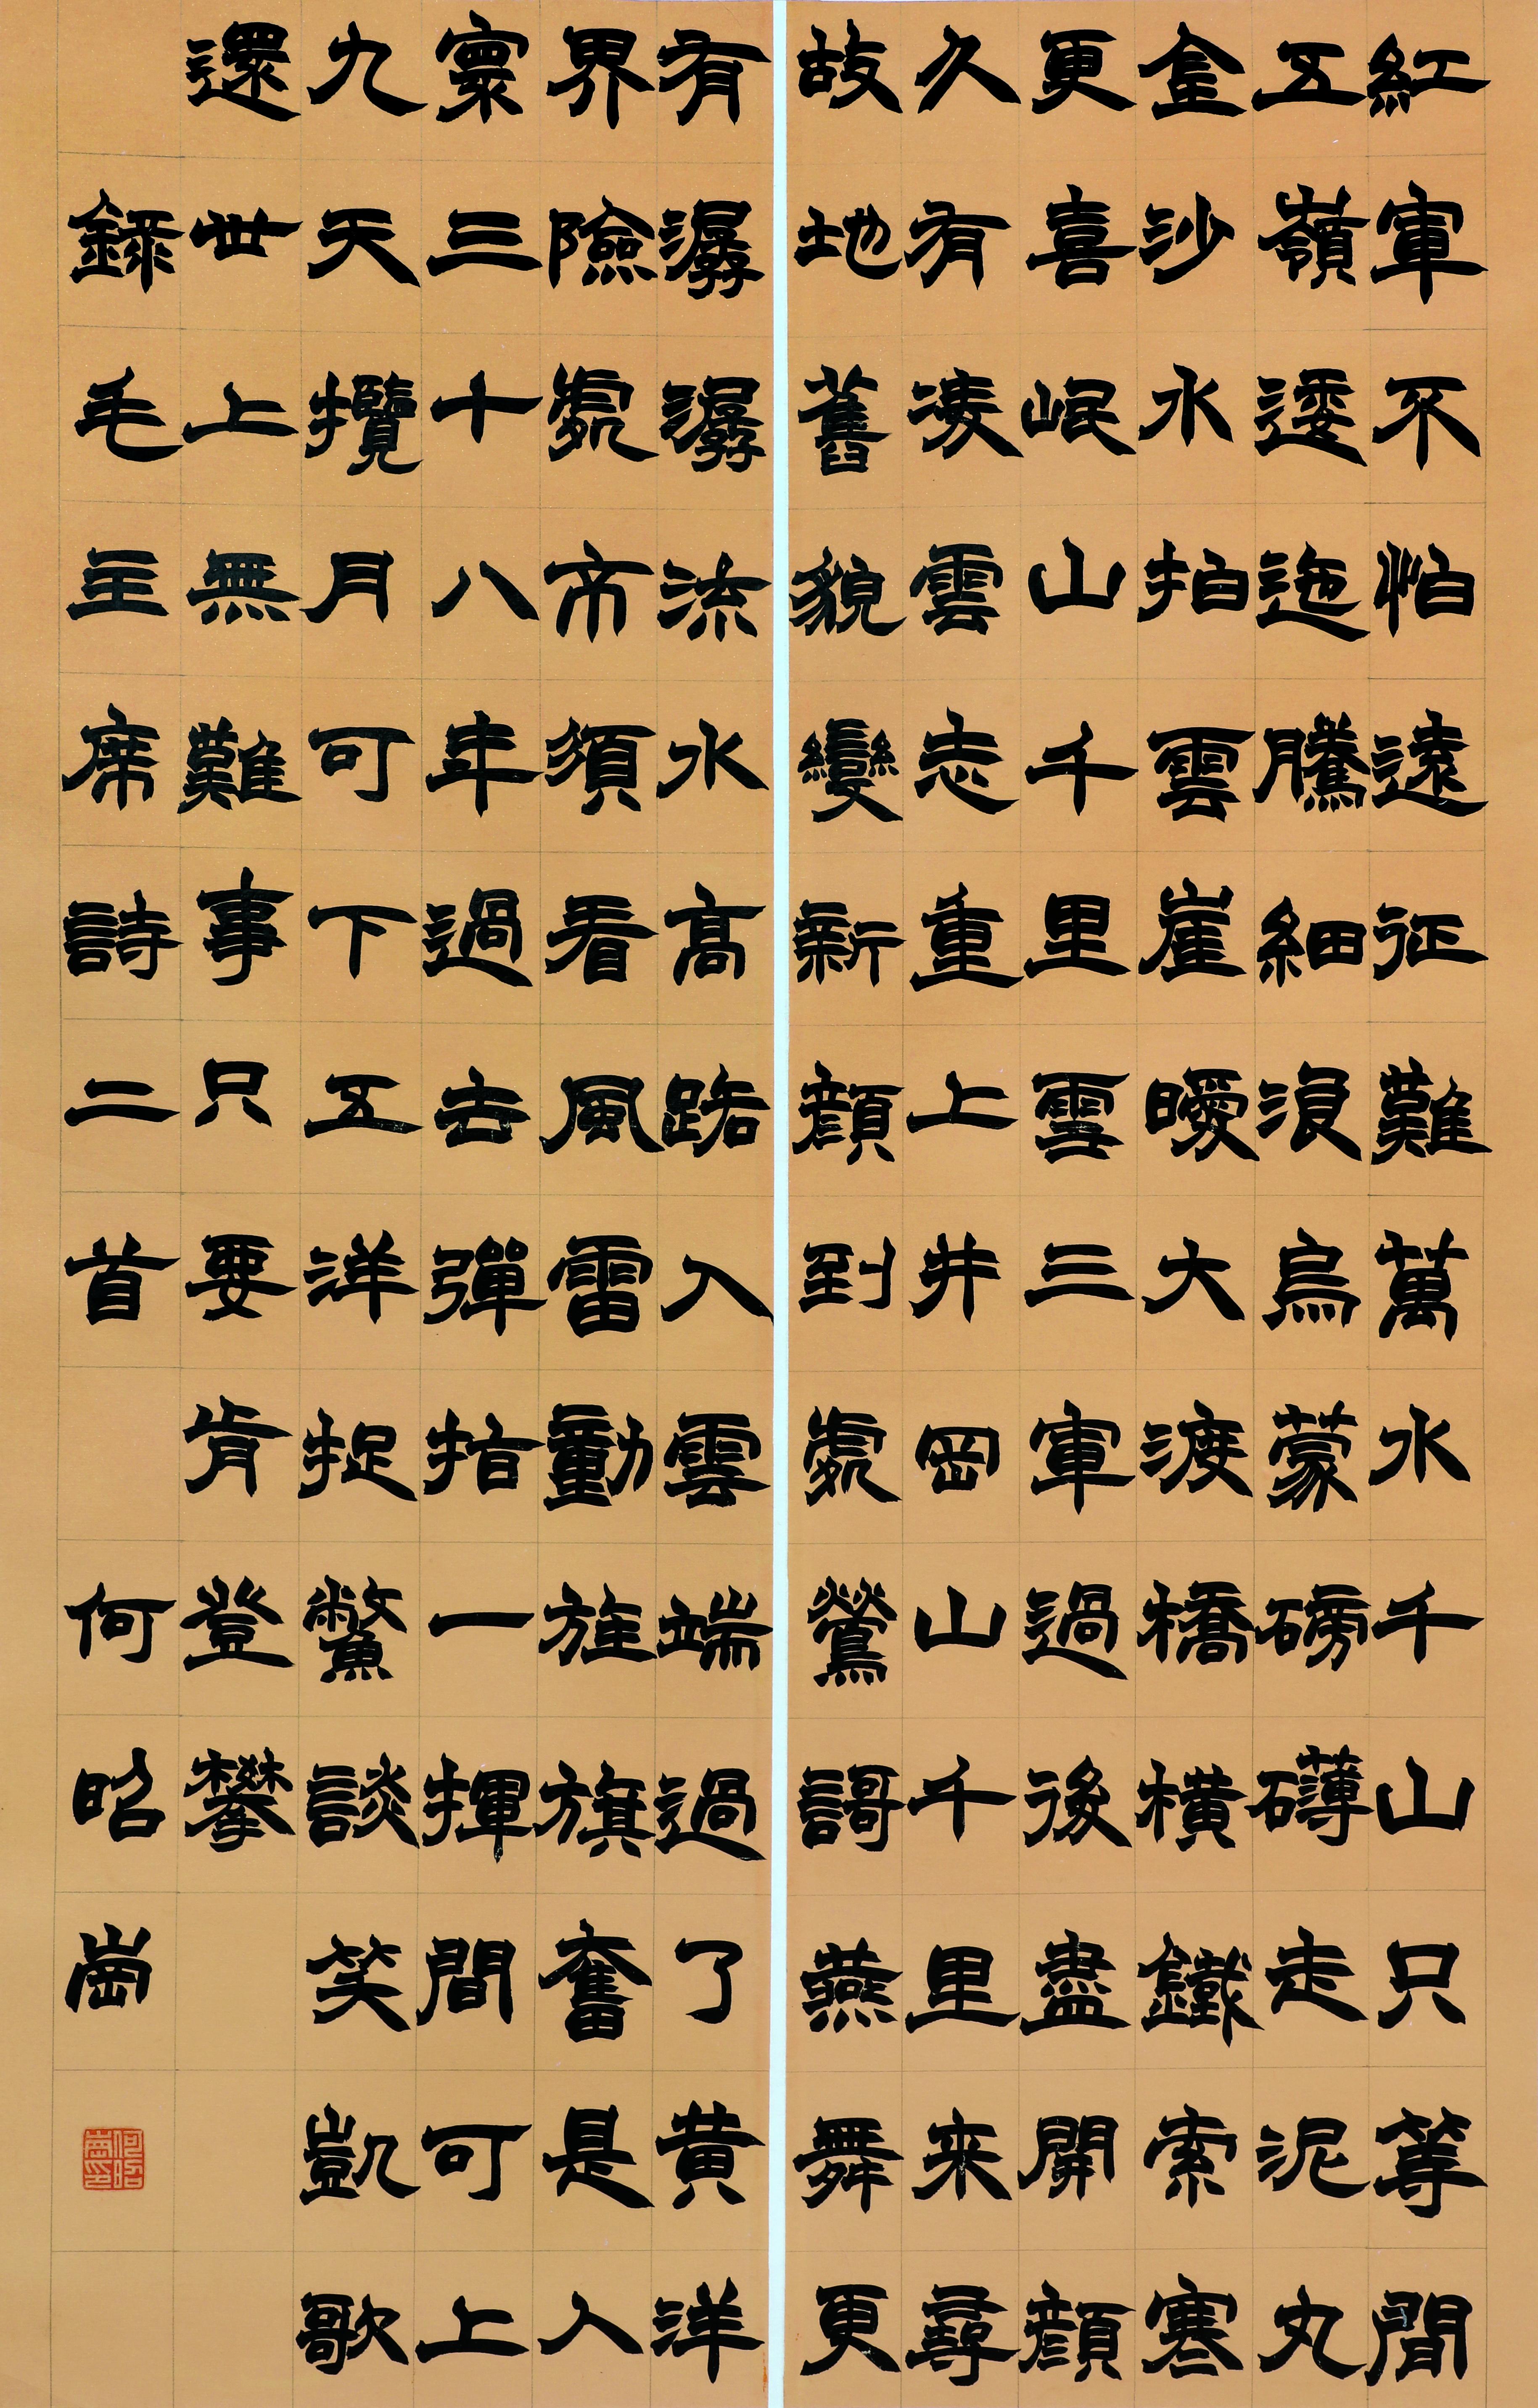 紅軍不怕遠征難萬水千山只等間
五嶺逶迤騰細浪烏蒙磅礴走泥丸
金沙水拍雲崖暖大渡橋橫鐵索寒
更喜岷山千里雪三軍過後盡開顏
久有凌雲志重上井岡山千里来尋
故地舊貌變新顏到處鶯謌燕舞更
有潺潺流水高路入雲端過了黃洋
界險處不須看風雷動旌旗奮是人
寰三十八年過去彈指一揮間可上
九天攬月可下五洋捉鱉談笑凱歌
還世上無難事只要肯登攀
錄毛主席詩二首 何昭崗
何昭崗印